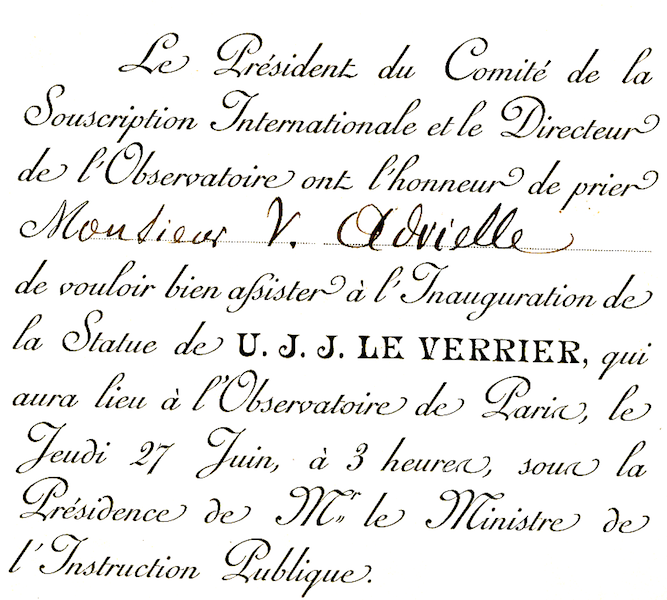 Le Président du Comité de la
Souscription Internationale et le Directeur
de l'Observatoire ont l'honneur de prier
Monsieur V. Advielle
de vouloir bien assister à l'Inauguration de
la Statue de U. J. J. LE VERRIER, qui
aura lieu à l'Observatoire de Paris, le
Jeudi 27 Juin, à 3 heures, sous la
Présidence de Mr le Ministre de
l'Instruction Publique.